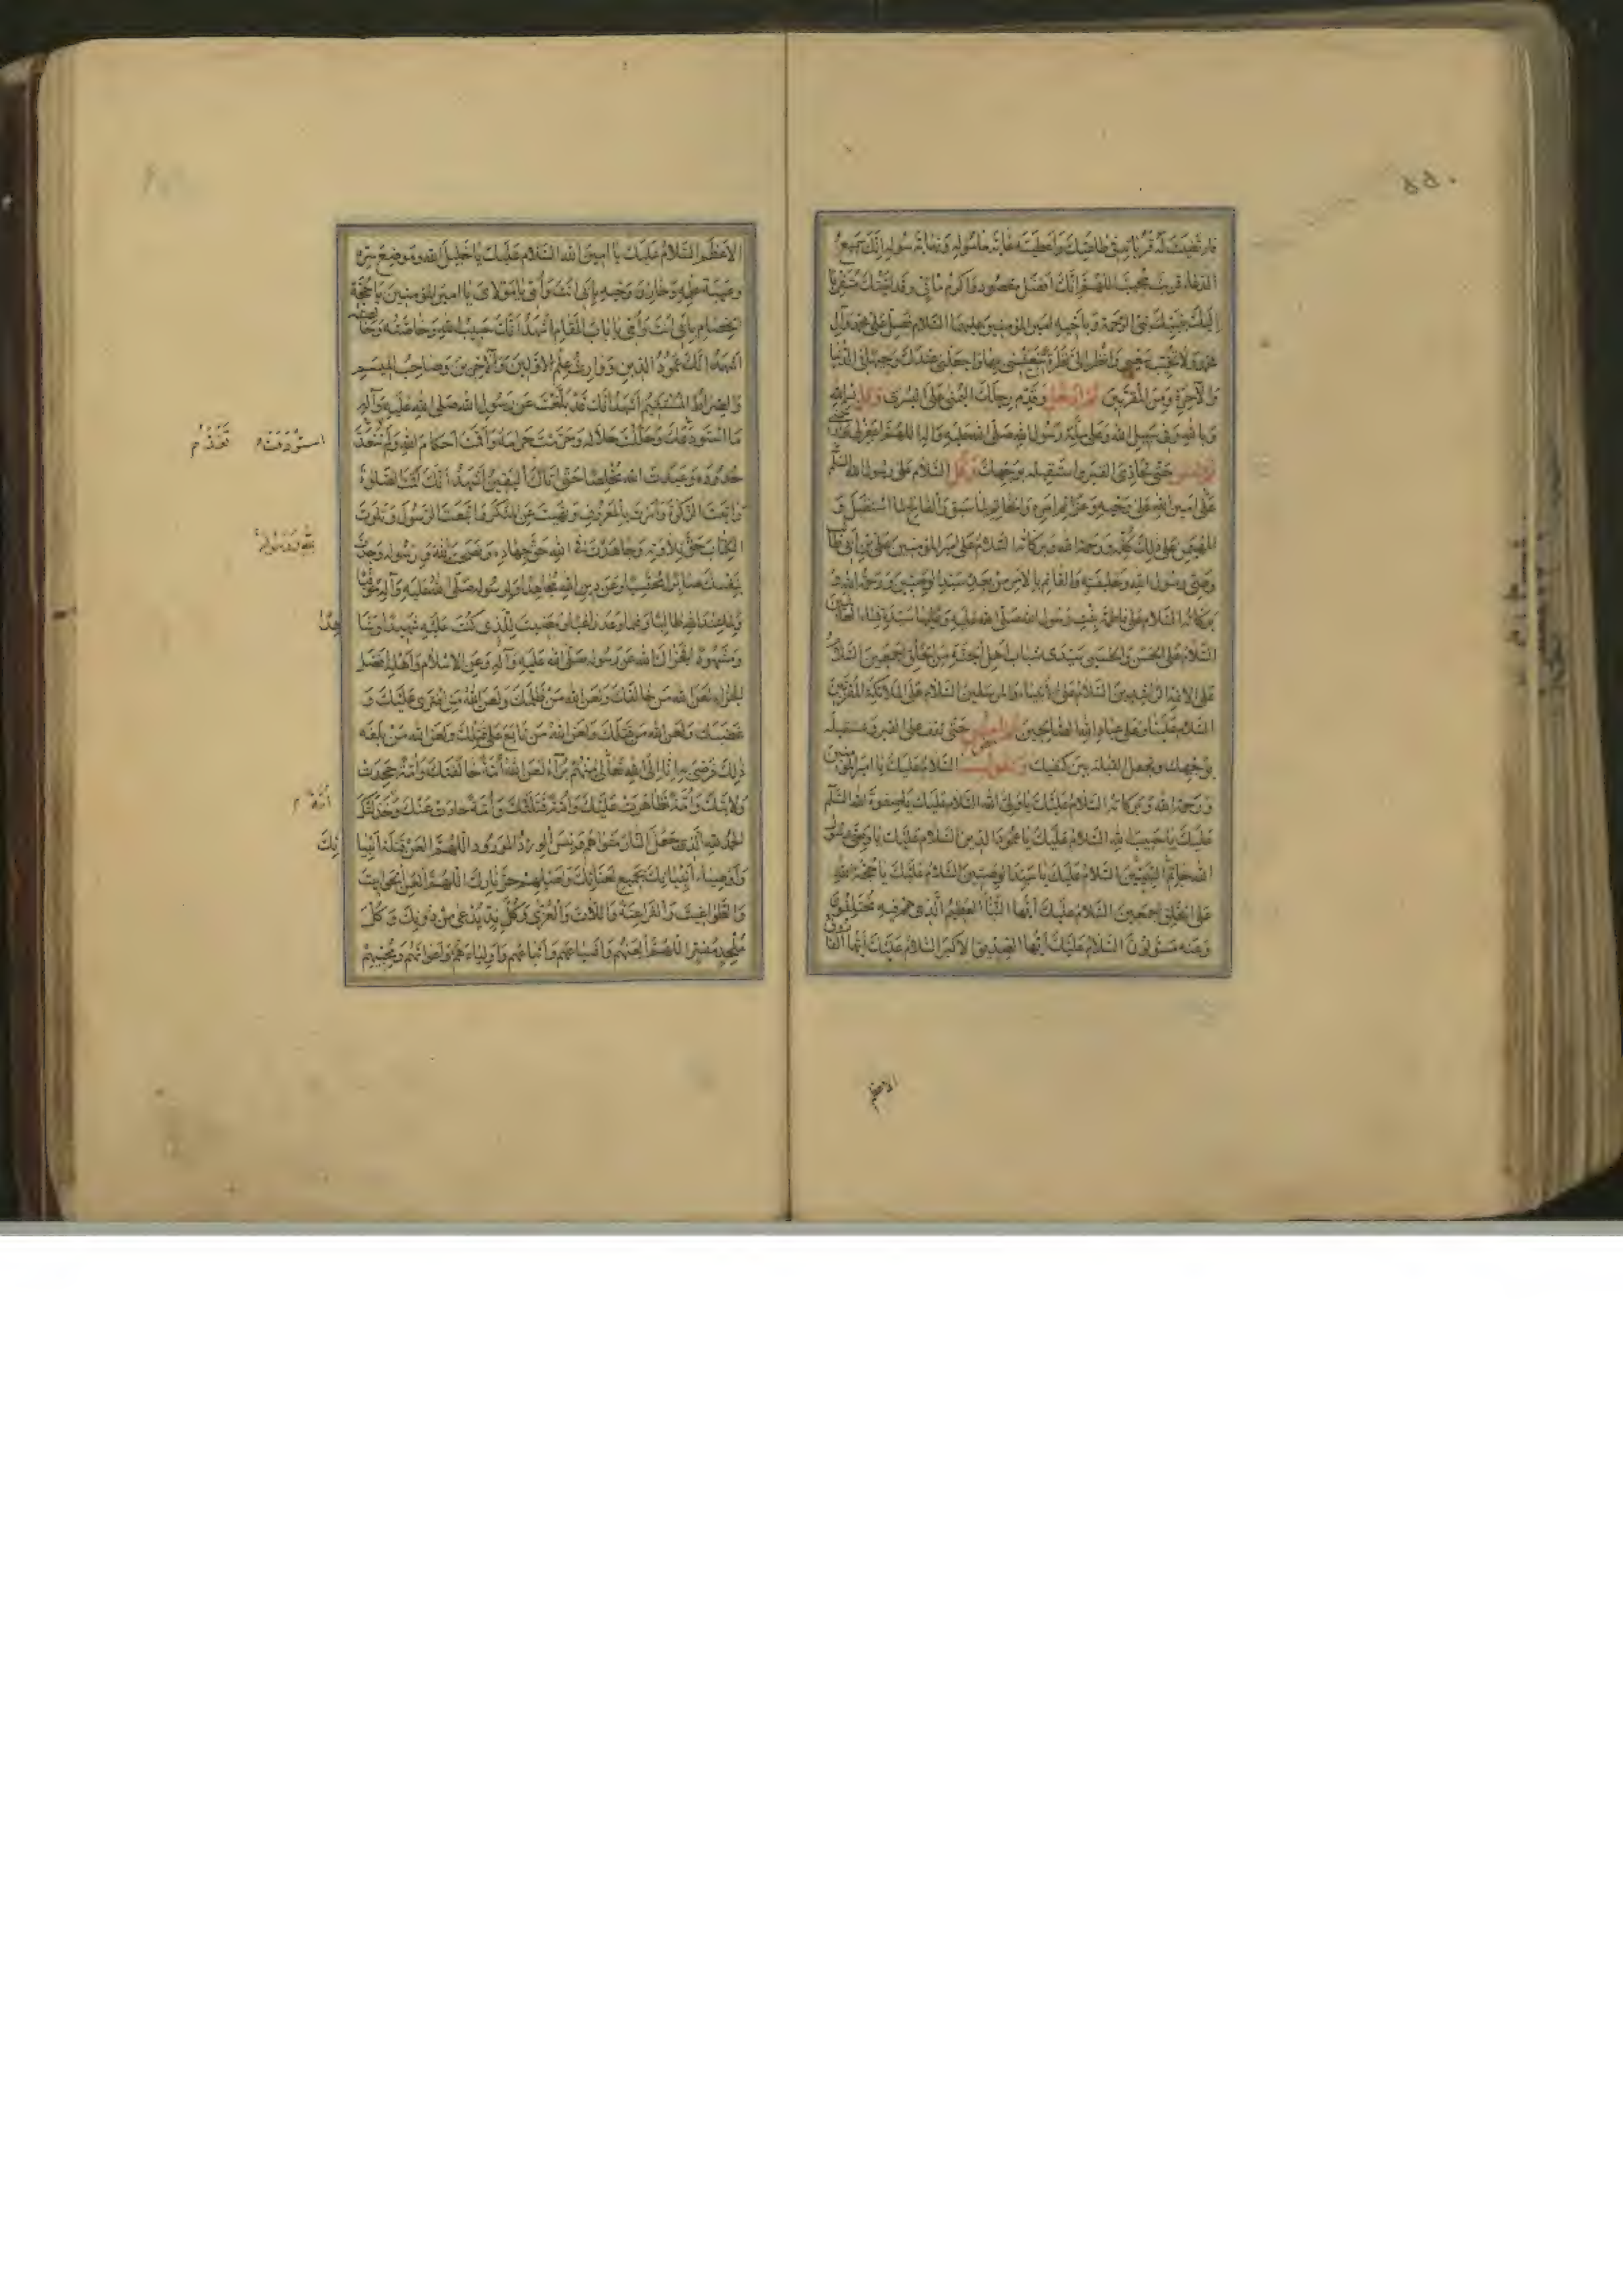 ۵۵۰
فارتضيت له قربانه في طاعتك واعطيته غاية مأموله ونهاية سوله انك سميع
الدعاء قريب مجيب اللهم انك افضل مقصود واكرم مأتي وقد اتيتك متقربا
اليك بنبيك نبي الرحمة وباخيه امير المؤمنين عليهما السلام فصل على محمد وآل
محمد ولا تخيب سعيي وانظر الي نظرة تنعشني بها واجعلني عندك وجيها في الدنيا
والآخرة ومن المقربين ثم ادخل وقدم رجلك اليمنى على اليسرى وقل بسم الله
وبالله وفي سبيل الله وعلى ملة رسول الله صلى الله عليه وآله اللهم اغفر لي
ثم امش حتى تحاذي القبر واستقبله بوجهك وقل السلام على رسول الله السلام
على امين الله على وحيه وعزائم امره والخاتم لما سبق والفاتح لما استقبل و
المهيمن على ذلك كله ورحمة الله وبركاته السلام على امير المؤمنين علي بن ابي طالب
وصي رسول الله وخليفته والقائم بالامر من بعده سيد الوصيين ورحمة الله و
بركاته السلام على فاطمة بنت رسول الله صلى الله عليه وعليها سيدة نساء العالمين
السلام على الحسن والحسين سيدي شباب اهل الجنة من الخلق اجمعين السلام
على الائمة الراشدين السلام على الانبياء والمرسلين السلام على الملائكة المقربين
السلام علينا وعلى عباد الله الصالحين ثم امش حتى تقف على القبر وتستقبله
بوجهك وتجعل القبلة بين كتفيك وتقول السلام عليك يا امير المؤمنين
ورحمة الله وبركاته السلام عليك يا ولي الله السلام عليك يا صفوة الله السلام
عليك يا حبيب الله السلام عليك يا عمود الدين السلام عليك يا وصي رسول
الله خاتم النبيين السلام عليك يا سيد الوصيين السلام عليك يا حجة الله
على الخلق اجمعين السلام عليك ايها النبأ العظيم الذي هم فيه مختلفون
وعنه مسؤلون السلام عليك ايها الصديق الاكبر السلام عليك ايها الفاروق
الاعظم
الاعظم السلام عليك يا امين الله السلام عليك يا خليل الله وموضع سره
وعيبة علمه وخازن وحيه بابي انت وأمي يا مولاي يا امير المؤمنين يا حجة
الخصام بابي انت وأمي يا باب المقام اشهد انك حبيب الله وخاصته وخالصته
اشهد انك عمود الدين ووارث علم الاولين والآخرين وصاحب الميسم
والصراط المستقيم اشهد انك قد بلغت عن رسول الله صلى الله عليه وآله
ما استودعك وحللت حلاله وحرمت حرامه واقمت احكام الله ولم تتعد
حدوده وعبدت الله مخلصا حتى اتاك اليقين اشهد انك اقمت الصلوة
وآتيت الزكوة وامرت بالمعروف ونهيت عن المنكر واتبعت الرسول وتلوت
الكتاب حق تلاوته وجاهدت في الله حق جهاده ونصحت لله ورسوله وجدت
بنفسك صابرا محتسبا وعن دين الله مجاهدا ولرسوله صلى الله عليه وآله موقيا
ولما عند الله طالبا وفيما وعد راغبا ومضيت للذي كنت عليه شهيدا وشاهدا
ومشهودا فجزاك الله عن رسوله صلى الله عليه وآله وعن الاسلام واهله افضل
الجزاء لعن الله من خالفك ولعن الله من ظلمك ولعن الله من افترى عليك و
غصبك ولعن الله من قتلك ولعن الله من تابع على قتلك ولعن الله من بلغه
ذلك فرضي به انا الى الله تعالى منهم برآء لعن الله أمة خالفتك وأمة جحدت
ولايتك وأمة تظاهرت عليك وأمة قتلتك وأمة حادت عنك وخذلتك
الحمد لله الذي جعل النار مثواهم وبئس الورد المورود اللهم العن قتلة انبيائك
واوصياء انبيائك بجميع لعناتك واصلهم حر نارك اللهم العن الجوابيت
والطواغيت والفراعنة واللات والعزى وكل ند يدعى من دونك وكل
ملحد مفتر اللهم العنهم واشياعهم واتباعهم واولياءهم واعوانهم ومحبيهم